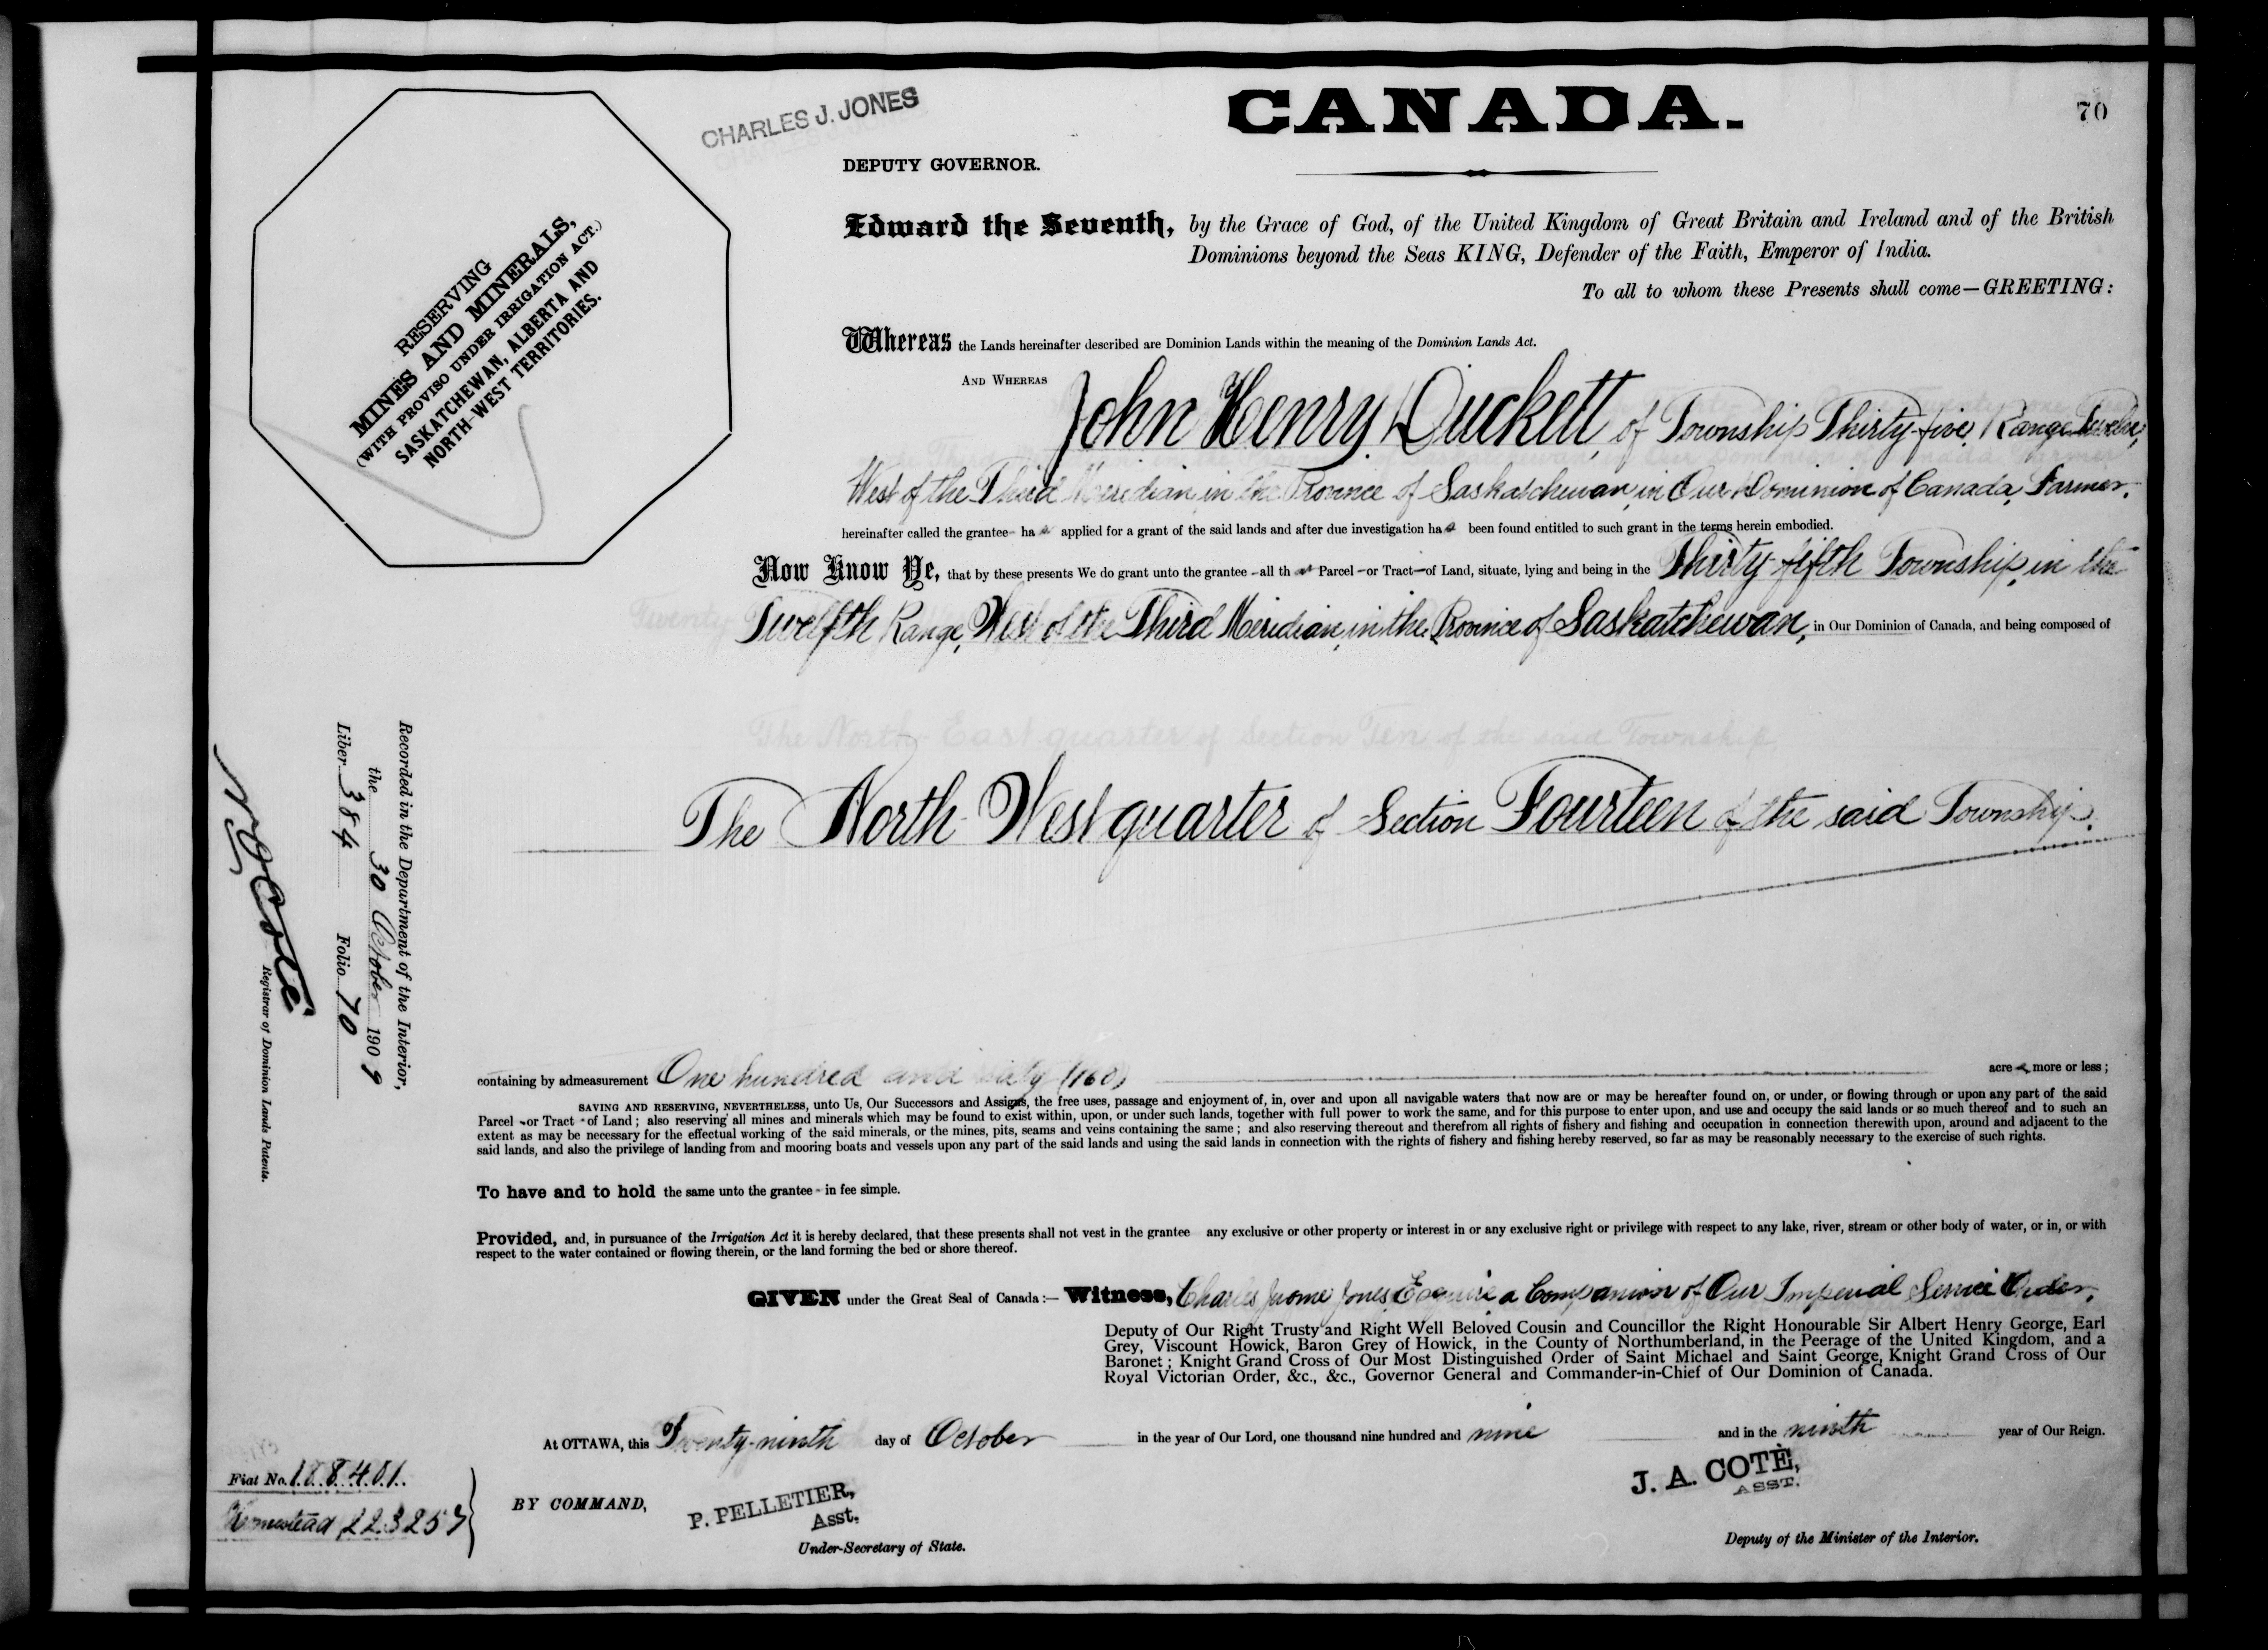 CANADA.
70
CHARLES J. JONES
DEPUTY GOVERNOR.
RESERVING
MINES AND MINERALS,
(WITH PROVISO UNDER IRRIGATION ACT.)
SASKATCHEWAN, ALBERTA AND
NORTH-WEST TERRITORIES.
Edward the Seventh, by the Grace of God, of the United Kingdom of Great Britain and Ireland and of the British
Dominions beyond the Seas KING, Defender of the Faith, Emperor of India.
To all to whom these Presents shall come—GREETING:
Whereas the Lands hereinafter described are Dominion Lands within the meaning of the Dominion Lands Act.
AND WHEREAS John Henry Duckett, of Township Thirty-five, Range Twelve,
West of the Third Meridian, in the Province of Saskatchewan, in Our Dominion of Canada, Farmer.
hereinafter called the grantee- has applied for a grant of the said lands and after due investigation has been found entitled to such grant in the terms herein embodied.
Now Know Ye, that by these presents We do grant unto the grantee -all that Parcel -or Tract-of Land, situate, lying and being in the Thirty-fifth Township, in the
Twelfth Range, West of the Third Meridian, in the Province of Saskatchewan, in Our Dominion of Canada, and being composed of
The North East quarter of Section Ten of the said Township
The North West quarter of Section Fourteen of the said Township.
containing by admeasurement One hundred and sixty (160) acres, more or less;
SAVING AND RESERVING, NEVERTHELESS, unto Us, Our Successors and Assigns, the free uses, passage and enjoyment of, in, over and upon all navigable waters that now are or may be hereafter found on, or under, or flowing through or upon any part of the said
Parcel -or Tract -of Land; also reserving all mines and minerals which may be found to exist within, upon, or under such lands, together with full power to work the same, and for this purpose to enter upon, and use and occupy the said lands or so much thereof and to such an
extent as may be necessary for the effectual working of the said minerals, or the mines, pits, seams and veins containing the same; and also reserving thereout and therefrom all rights of fishery and fishing and occupation in connection therewith upon, around and adjacent to the
said lands, and also the privilege of landing from and mooring boats and vessels upon any part of the said lands and using the said lands in connection with the rights of fishery and fishing hereby reserved, so far as may be reasonably necessary to the exercise of such rights.
To have and to hold the same unto the grantee - in fee simple.
Provided, and, in pursuance of the Irrigation Act it is hereby declared, that these presents shall not vest in the grantee any exclusive or other property or interest in or any exclusive right or privilege with respect to any lake, river, stream or other body of water, or in, or with
respect to the water contained or flowing therein, or the land forming the bed or shore thereof.
GIVEN under the Great Seal of Canada:— Witness, Charles Jerome Jones, Esquire, a Companion of Our Imperial Service Order,
Deputy of Our Right Trusty and Right Well Beloved Cousin and Councillor the Right Honourable Sir Albert Henry George, Earl
Grey, Viscount Howick, Baron Grey of Howick, in the County of Northumberland, in the Peerage of the United Kingdom, and a
Baronet; Knight Grand Cross of Our Most Distinguished Order of Saint Michael and Saint George, Knight Grand Cross of Our
Royal Victorian Order, &c., &c., Governor General and Commander-in-Chief of Our Dominion of Canada.
At OTTAWA, this Twenty-ninth day of October in the year of Our Lord, one thousand nine hundred and nine and in the ninth year of Our Reign.
Fiat No. 188401.
Homestead 223257
BY COMMAND,
P. PELLETIER,
Asst.
Under-Secretary of State.
J. A. COTÉ,
ASST.
Deputy of the Minister of the Interior.
Recorded in the Department of the Interior,
the 30 October 1909
Liber 384 Folio 70
N.O. Coté
Registrar of Dominion Lands Patents.